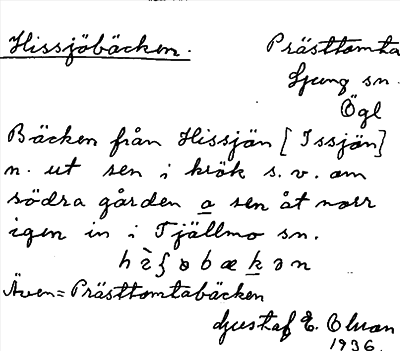 Hissjöbäcken.
Prästtomta
Ljung sn.
Ögl
Bäcken från Hissjön [Issjön]
n. ut sen i krök s. v. om
södra gården a sen åt norr
igen in i Tjällmo sn.
Även = Prästtomtabäcken
Gustaf E. Olson
1936.